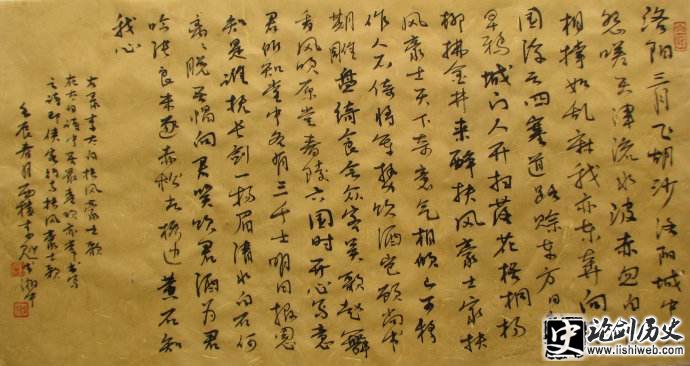 洛陽三月飞胡沙洛陽城中
怨嗟天津流水波赤血白
相撑如乱麻我亦东奔向
国浮云四塞道路赊东方日
早鸦城门人开扫落花梧桐杨
柳拂金井来醉扶风豪士家扶
风豪士天下奇意气相倾山可移
作人不倚将军势饮酒岂顾尚书
期雕盘绮食会众客吴歌赵舞
香风吹原尝春陵六国时开心写意
君所知堂中各有三千士明日报恩
知是谁抚长剑一扬眉清水白石何
离々脱吾帽向君笑饮君酒为君
吟张良未逐赤松去桥边黄石知
我心
李太白扶风豪士歌
在太白诗中
之诗 扶风豪士歌
壬辰春月
史 论剑历史
www.lishiweb.com